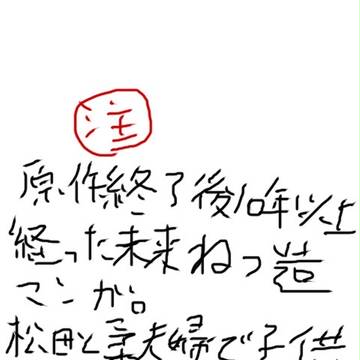 注
原作終了後10年以上
経った未来ねつ造
マンガ。
松田と粧夫婦で子供